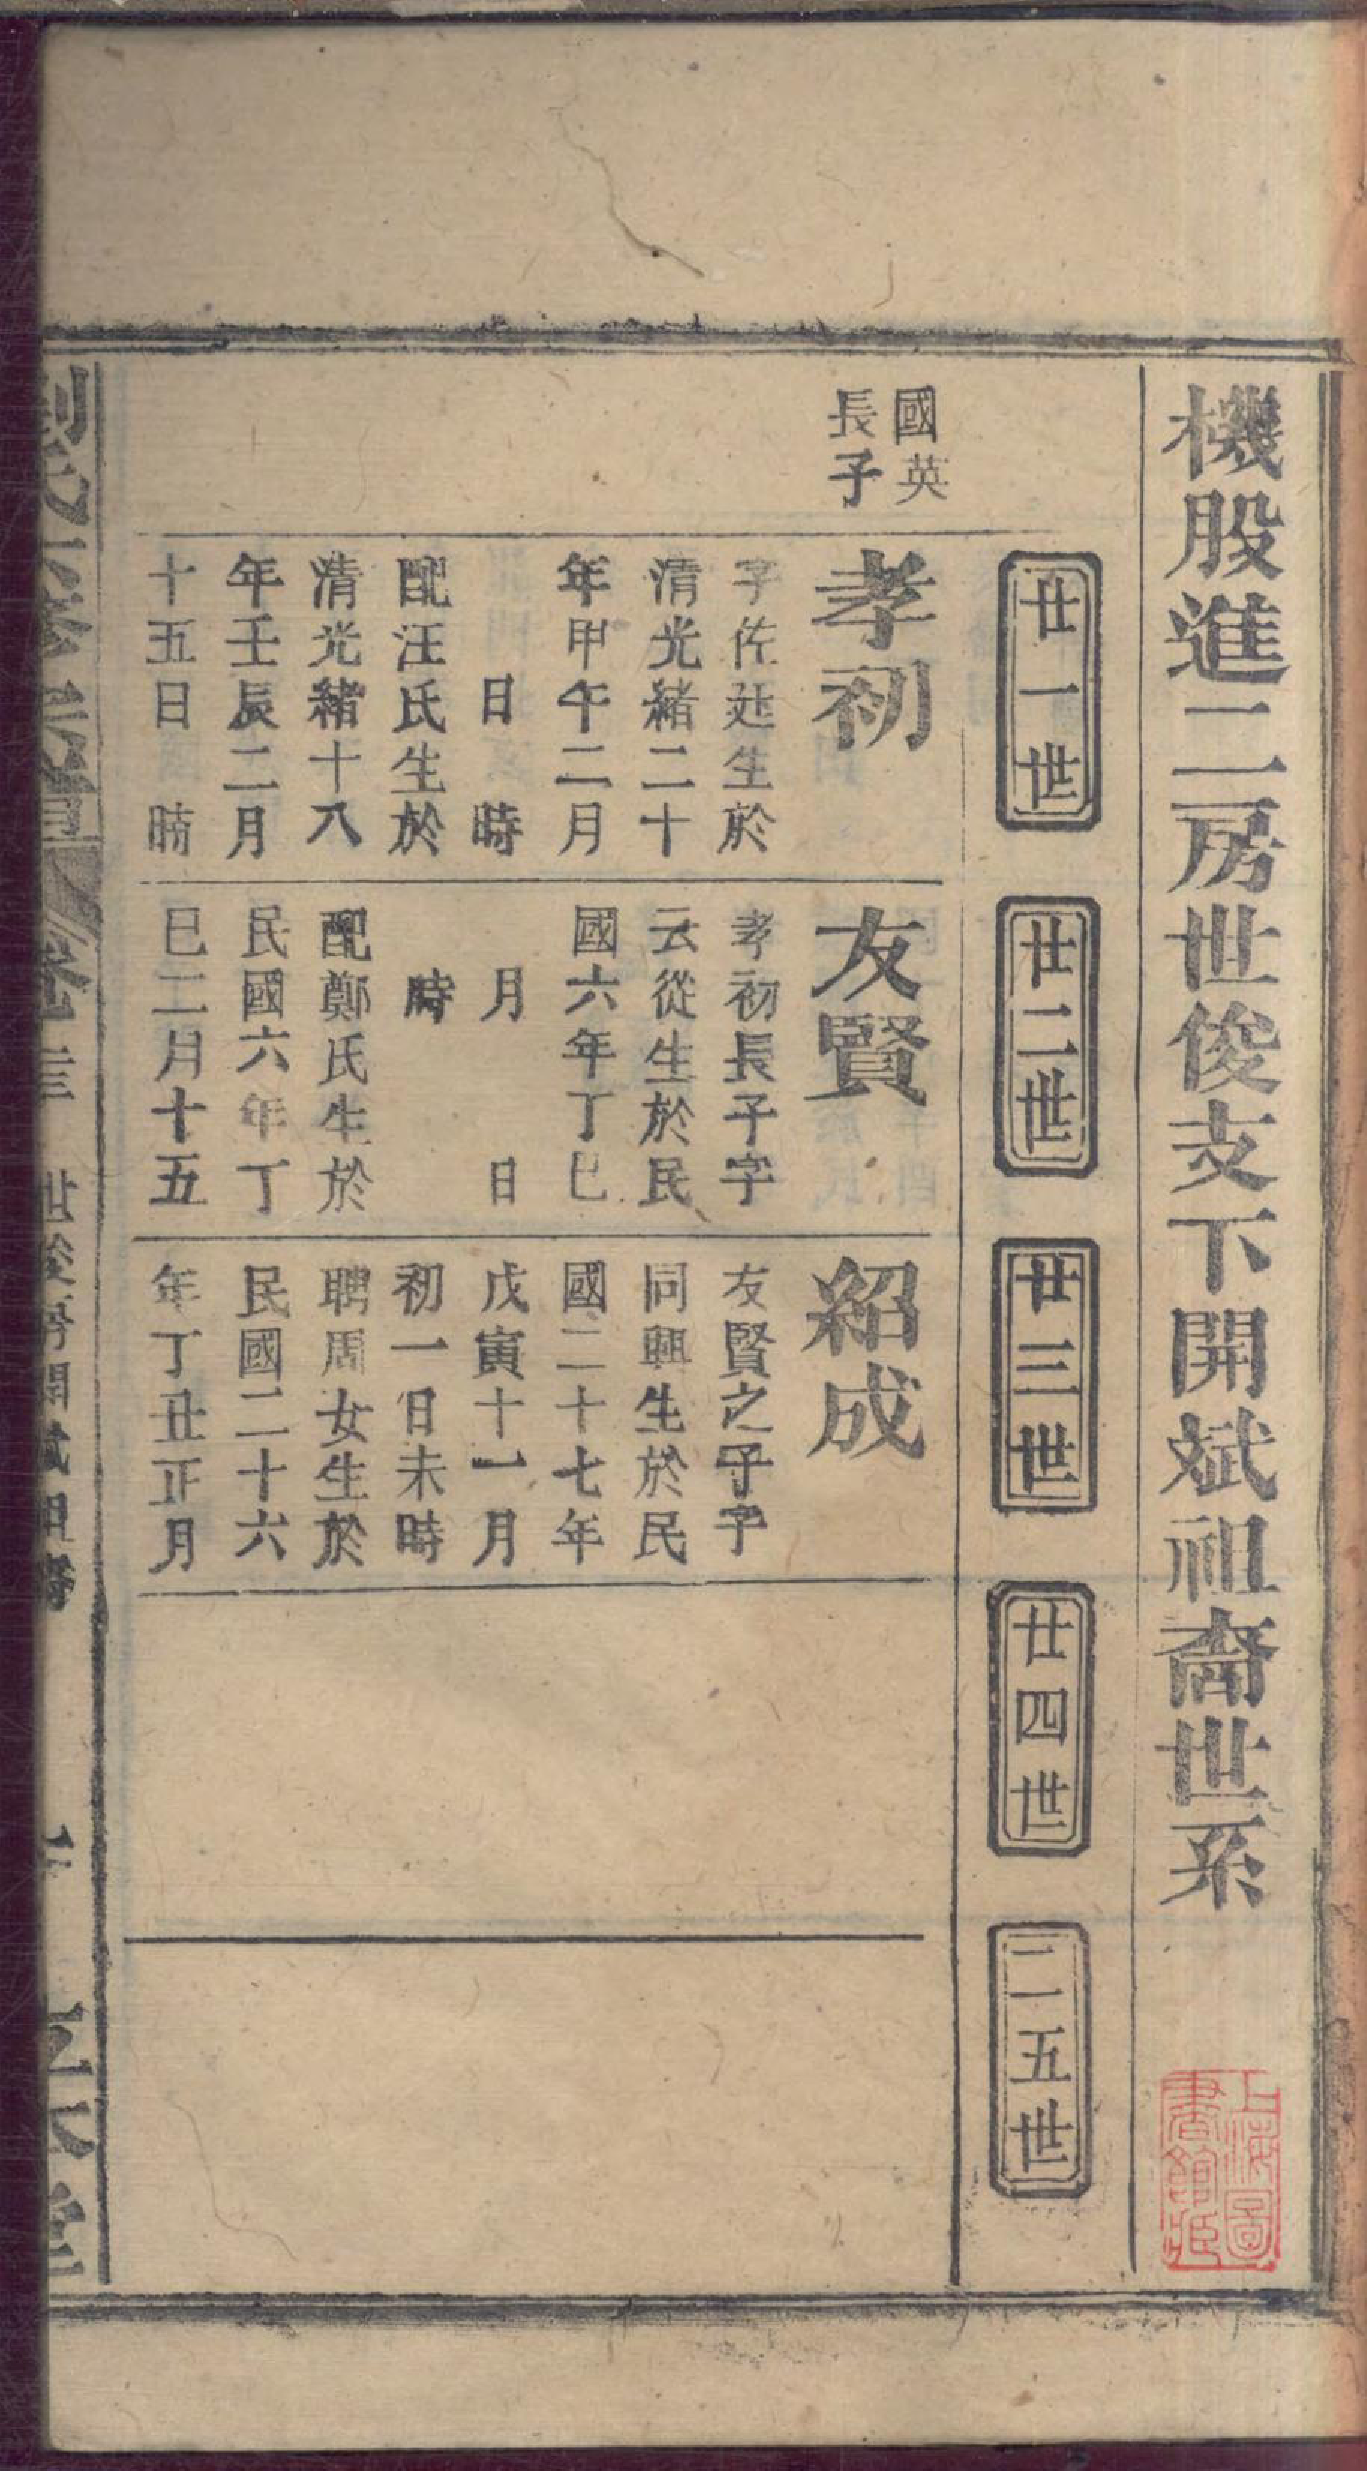 機股進二房世俊支下開斌祖裔世系
上海圖
書館藏
廿一世
廿二世
廿三世
廿四世
二五世
國英
長子
孝初
字佐廷生於
清光緒二十
年甲午二月
日 時
配汪氏生於
清光緒十八
年壬辰二月
十五日 時
友賢
孝初長子字
云從生於民
國六年丁巳
月 日
時
配鄭氏生於
民國六年丁
巳二月十五
紹成
友賢之子字
同興生於民
國二十七年
戊寅十一月
初一日未時
聘周女生於
民國二十六
年丁丑正月